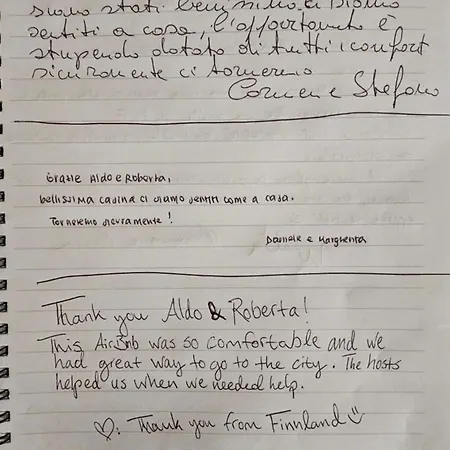 siamo stati benissimo, ci siamo
sentiti a casa, l'appartamento è
stupendo dotato di tutti i confort
sicuramente ci torneremo
Carmen e Stefano
Grazie Aldo e Roberta,
bellissima casina ci siamo sentiti come a casa.
Torneremo sicuramente!
Daniele e Margherita
Thank you Aldo & Roberta!
This AirBnb was so comfortable and we
had great way to go to the city. The hosts
helped us when we needed help.
♡: Thank you from Finnland :)